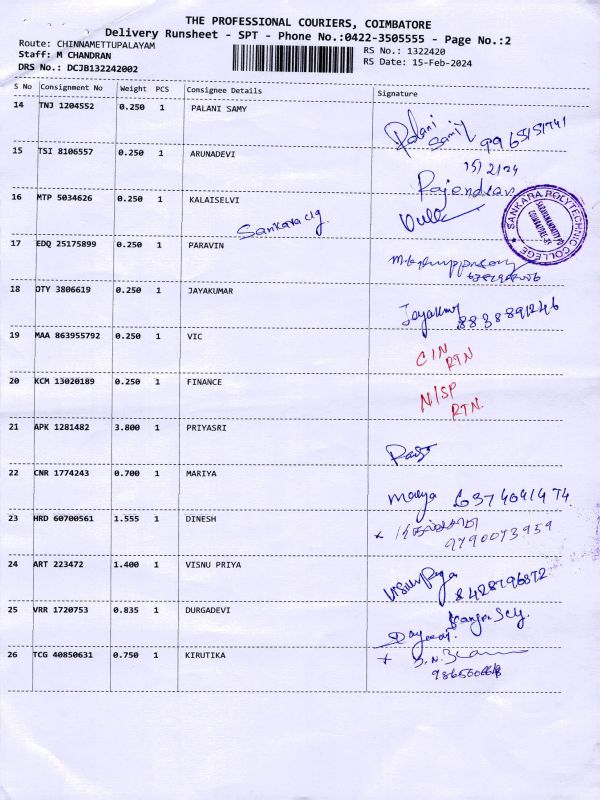 THE PROFESSIONAL COURIERS, COIMBATORE
Delivery Runsheet - SPT - Phone No.:0422-3505555 - Page No.:2
Route: CHINNAMETTUPALAYAM
RS No.: 1322420
Staff: M CHANDRAN
RS Date: 15-Feb-2024
DRS No.: DCJB132242002
S No Consignment No Weight PCS Consignee Details Signature
14 TNJ 1204552 0.250 1 PALANI SAMY
Palani
Samy
15 TSI 8106557 0.250 1 ARUNADEVI
15/2/24
Rajendran
16 MTP 5034626 0.250 1 KALAISELVI
Sankara clg.
SANKARA POLYTECHNIC COLLEGE
17 EDQ 25175899 0.250 1 PARAVIN
18 OTY 3806619 0.250 1 JAYAKUMAR
Jayakumar 8838891246
19 MAA 863955792 0.250 1 VIC
C/N
RTN
20 KCM 13020189 0.250 1 FINANCE
N/SP
RTN.
21 APK 1281482 3.800 1 PRIYASRI
22 CNR 1774243 0.700 1 MARIYA
Mariya
23 HRD 60700561 1.555 1 DINESH
9790073959
24 ART 223472 1.400 1 VISNU PRIYA
Visnu Priya
8428796872
25 VRR 1720753 0.835 1 DURGADEVI
26 TCG 40850631 0.750 1 KIRUTIKA